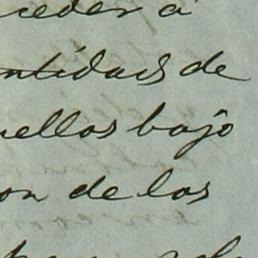 ceder á
entidads de
uellos bajo
on de los